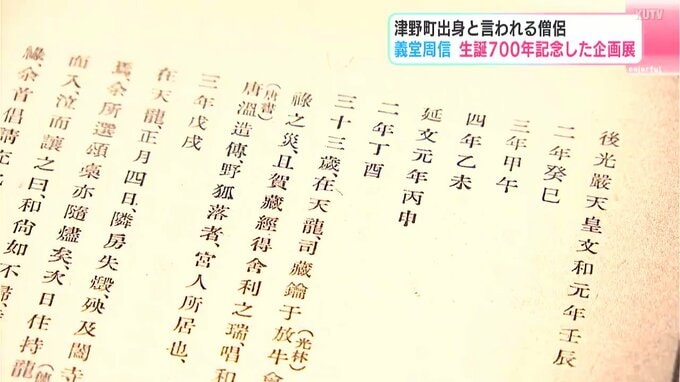 KUTV
津野町出身と言われる僧侶
義堂周信 生誕700年記念した企画展
colorful
後光嚴天皇文和元年壬辰
二年癸巳
三年甲午
四年乙未
延文元年丙申
二年丁酉
三十三歲、在天龍、司藏鑰于放牛會
(光林)
祿之災、且賀藏經得舍利之瑞、唱和
(唐書)
唐溫造傳野狐落者、宮人所居也、
三年戊戌
在天龍、正月四日、隣房失燬、殃及闔寺
焉、余所選頌藁亦隨燼矣、次日住持龍
而入、泣而讓之曰、和尙如不歸、
緣、余首倡請在